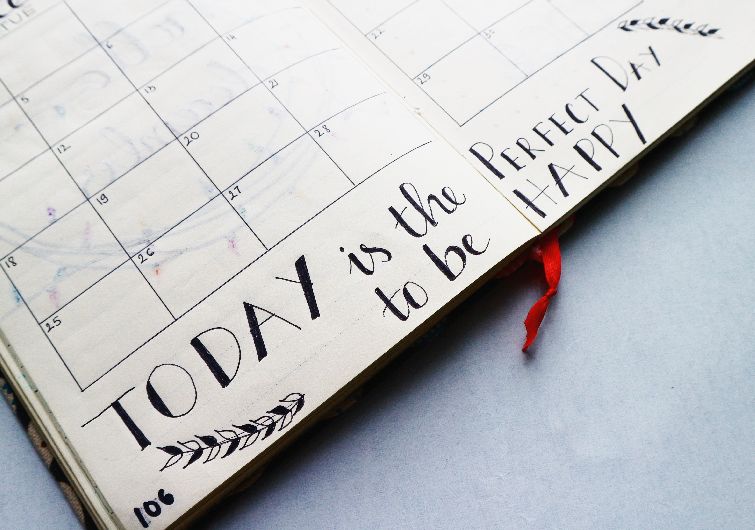 TUE
5
6
12
13
14
18
19
20
21
22
25
26
27
28
29
TODAY is the PERFECT DAY
to be HAPPY
106